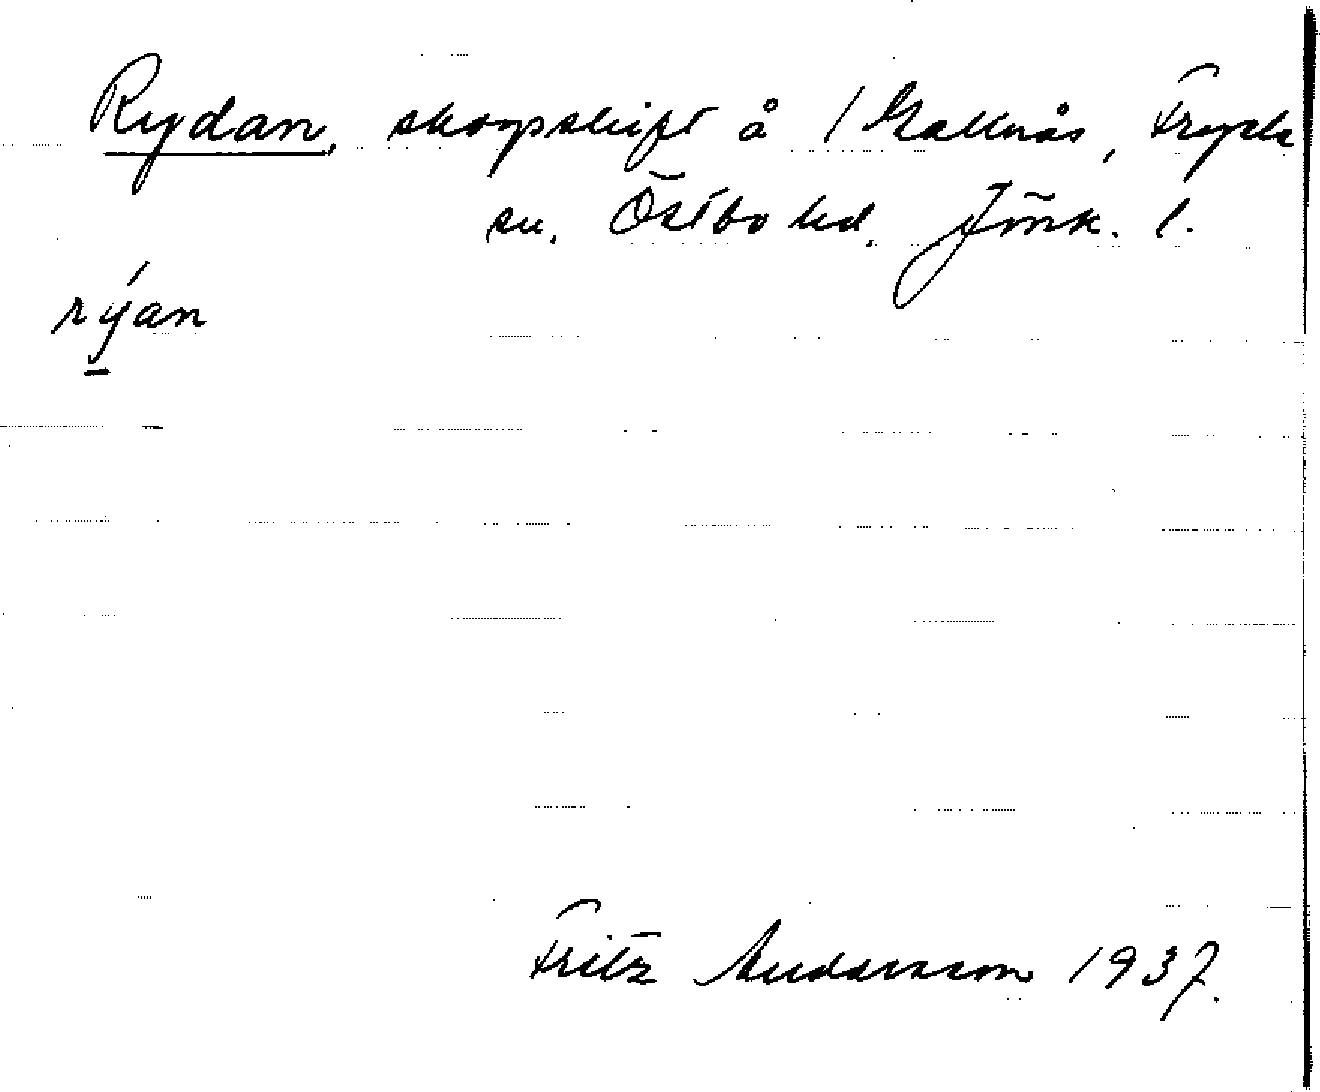 Rydan, skogsskift å 1 Galtnås, Fryele
sn. Östbo hd. Jönk. l.
rýan
Fritz Andersson 1937.